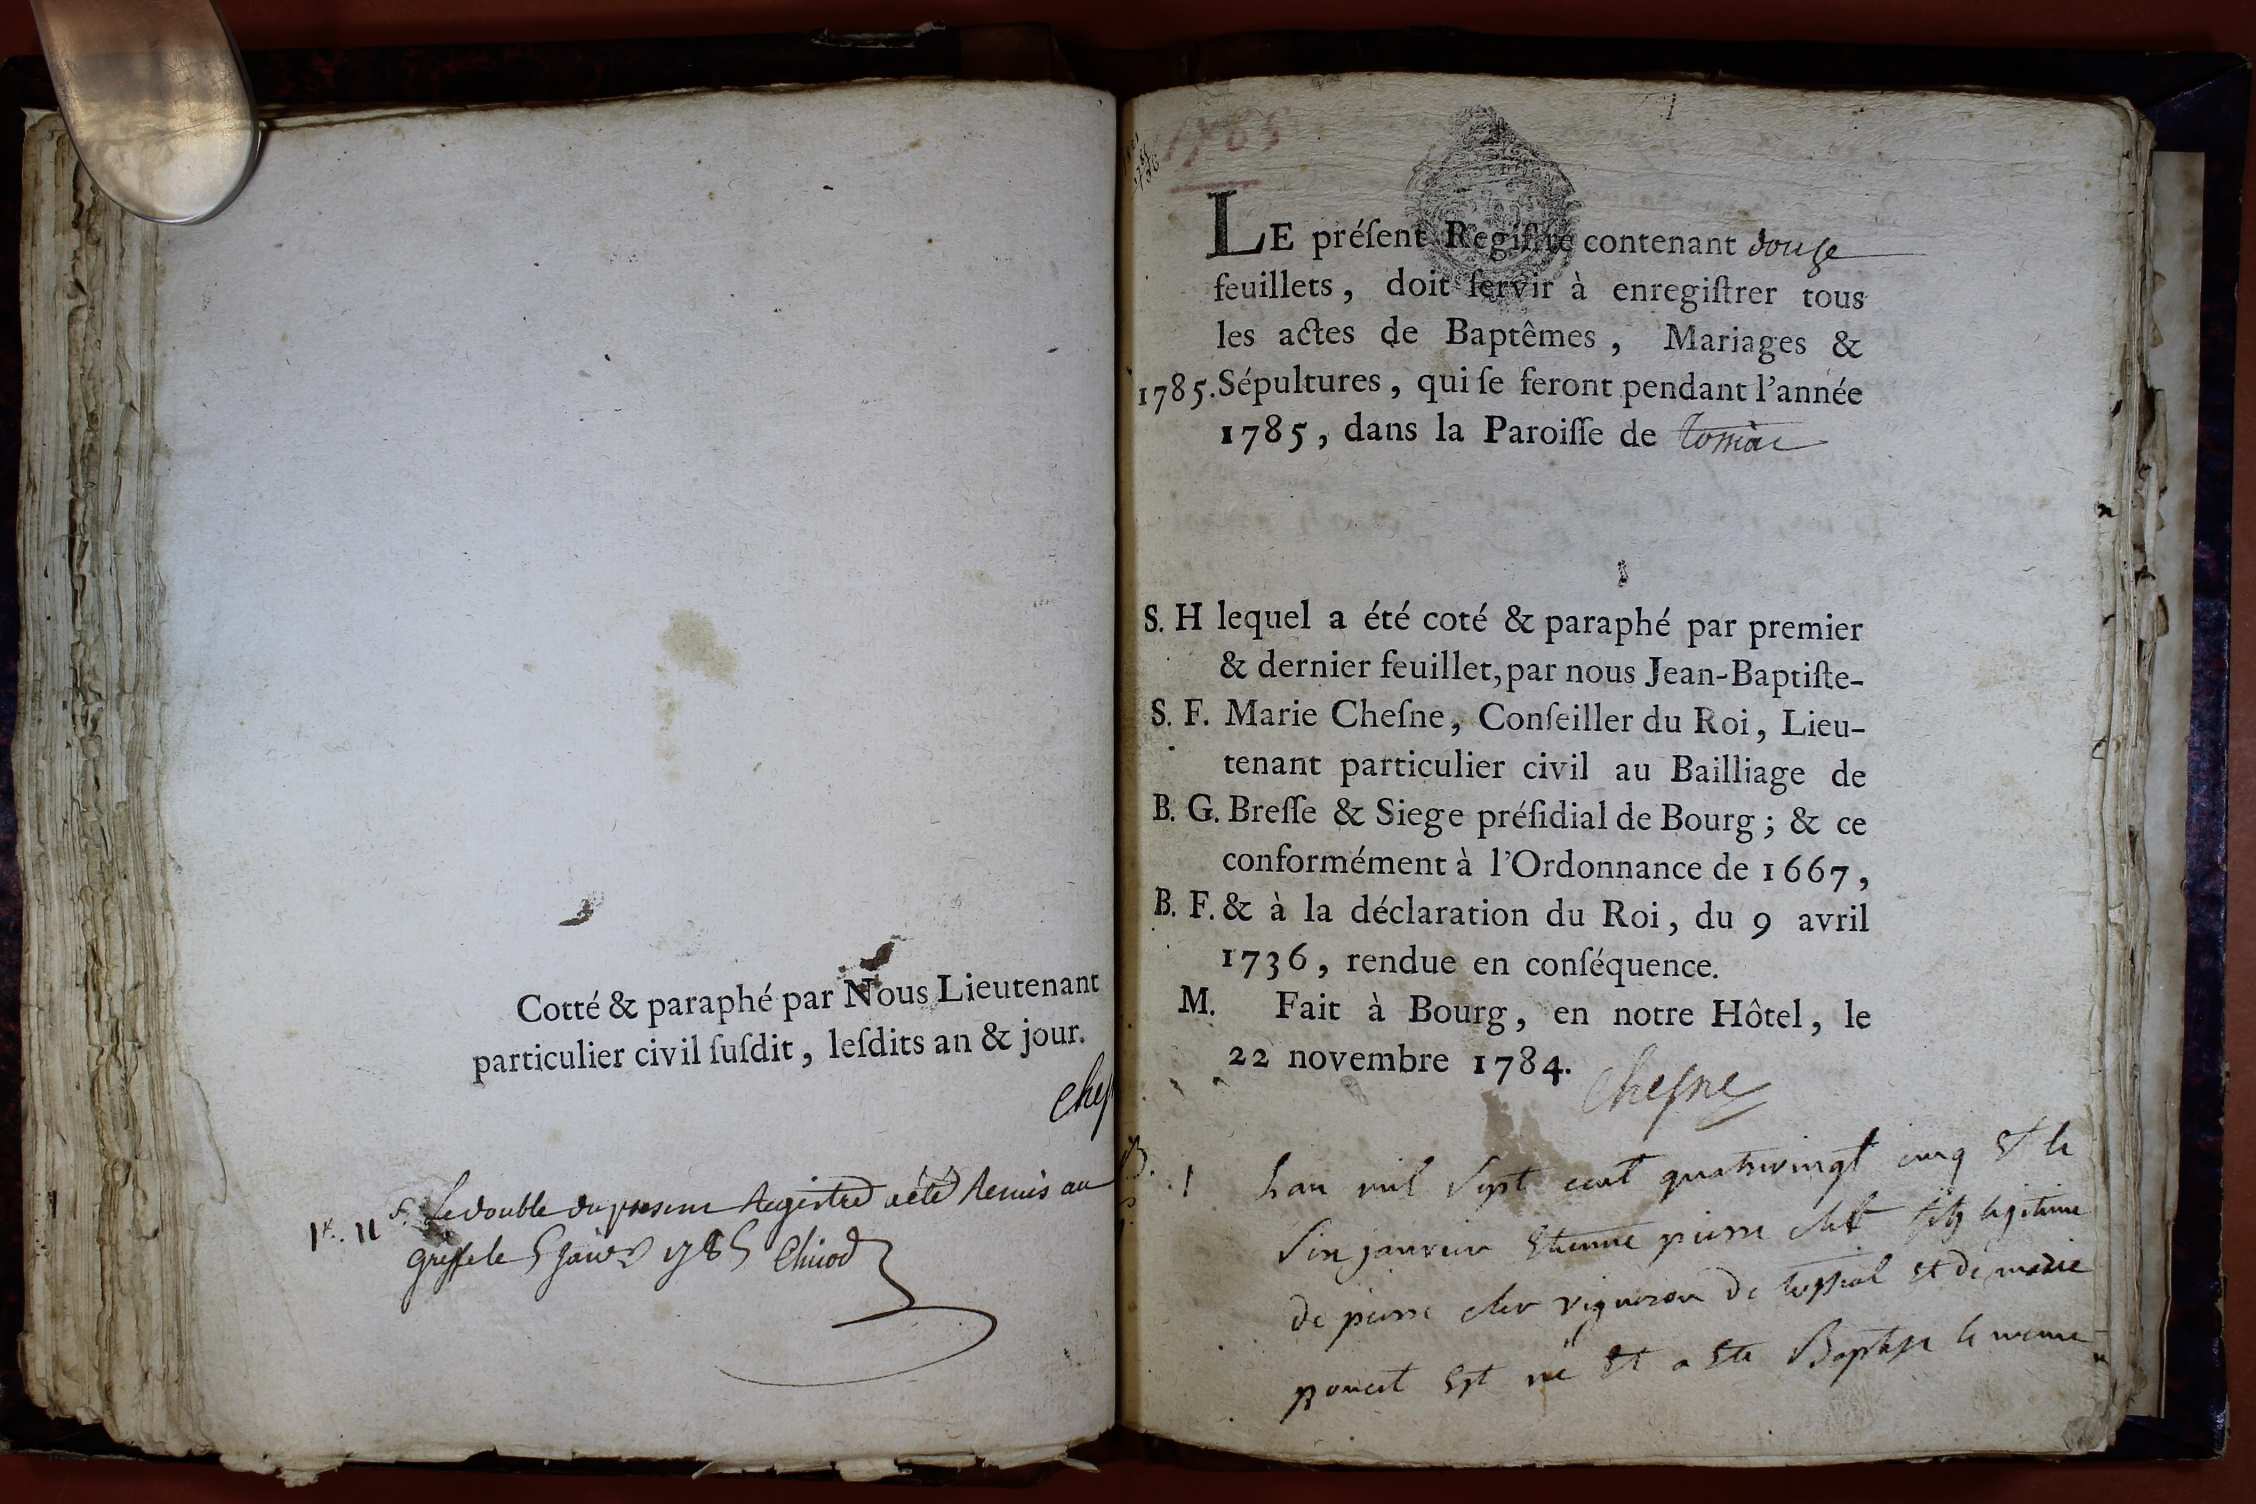 Cotté & paraphé par Nous Lieutenant
particulier civil ſuſdit, leſdits an & jour.
Cheſ
Le double du present Registre a été Remis au
greffe le 5 janv. 1785
1785
LE préſent Regiſtre contenant douze
feuillets, doit ſervir à enregiſtrer tous
les actes de Baptêmes, Mariages &
1785. Sépultures, qui ſe feront pendant l'année
1785, dans la Paroiſſe de
S. H lequel a été coté & paraphé par premier
& dernier feuillet, par nous Jean-Baptiſte-
S. F. Marie Cheſne, Conſeiller du Roi, Lieu-
tenant particulier civil au Bailliage de
B. G. Breſſe & Siege préſidial de Bourg; & ce
conformément à l'Ordonnance de 1667,
B. F. & à la déclaration du Roi, du 9 avril
1736, rendue en conſéquence.
M. Fait à Bourg, en notre Hôtel, le
22 novembre 1784.
Cheſne
B. 1 Lan mil sept cent quatrevingt cinq Et le
six janvier Etienne pierre fils legitime
de pierre vigneron de Et de marie
poncet Est né Et a Ete Baptise le meme